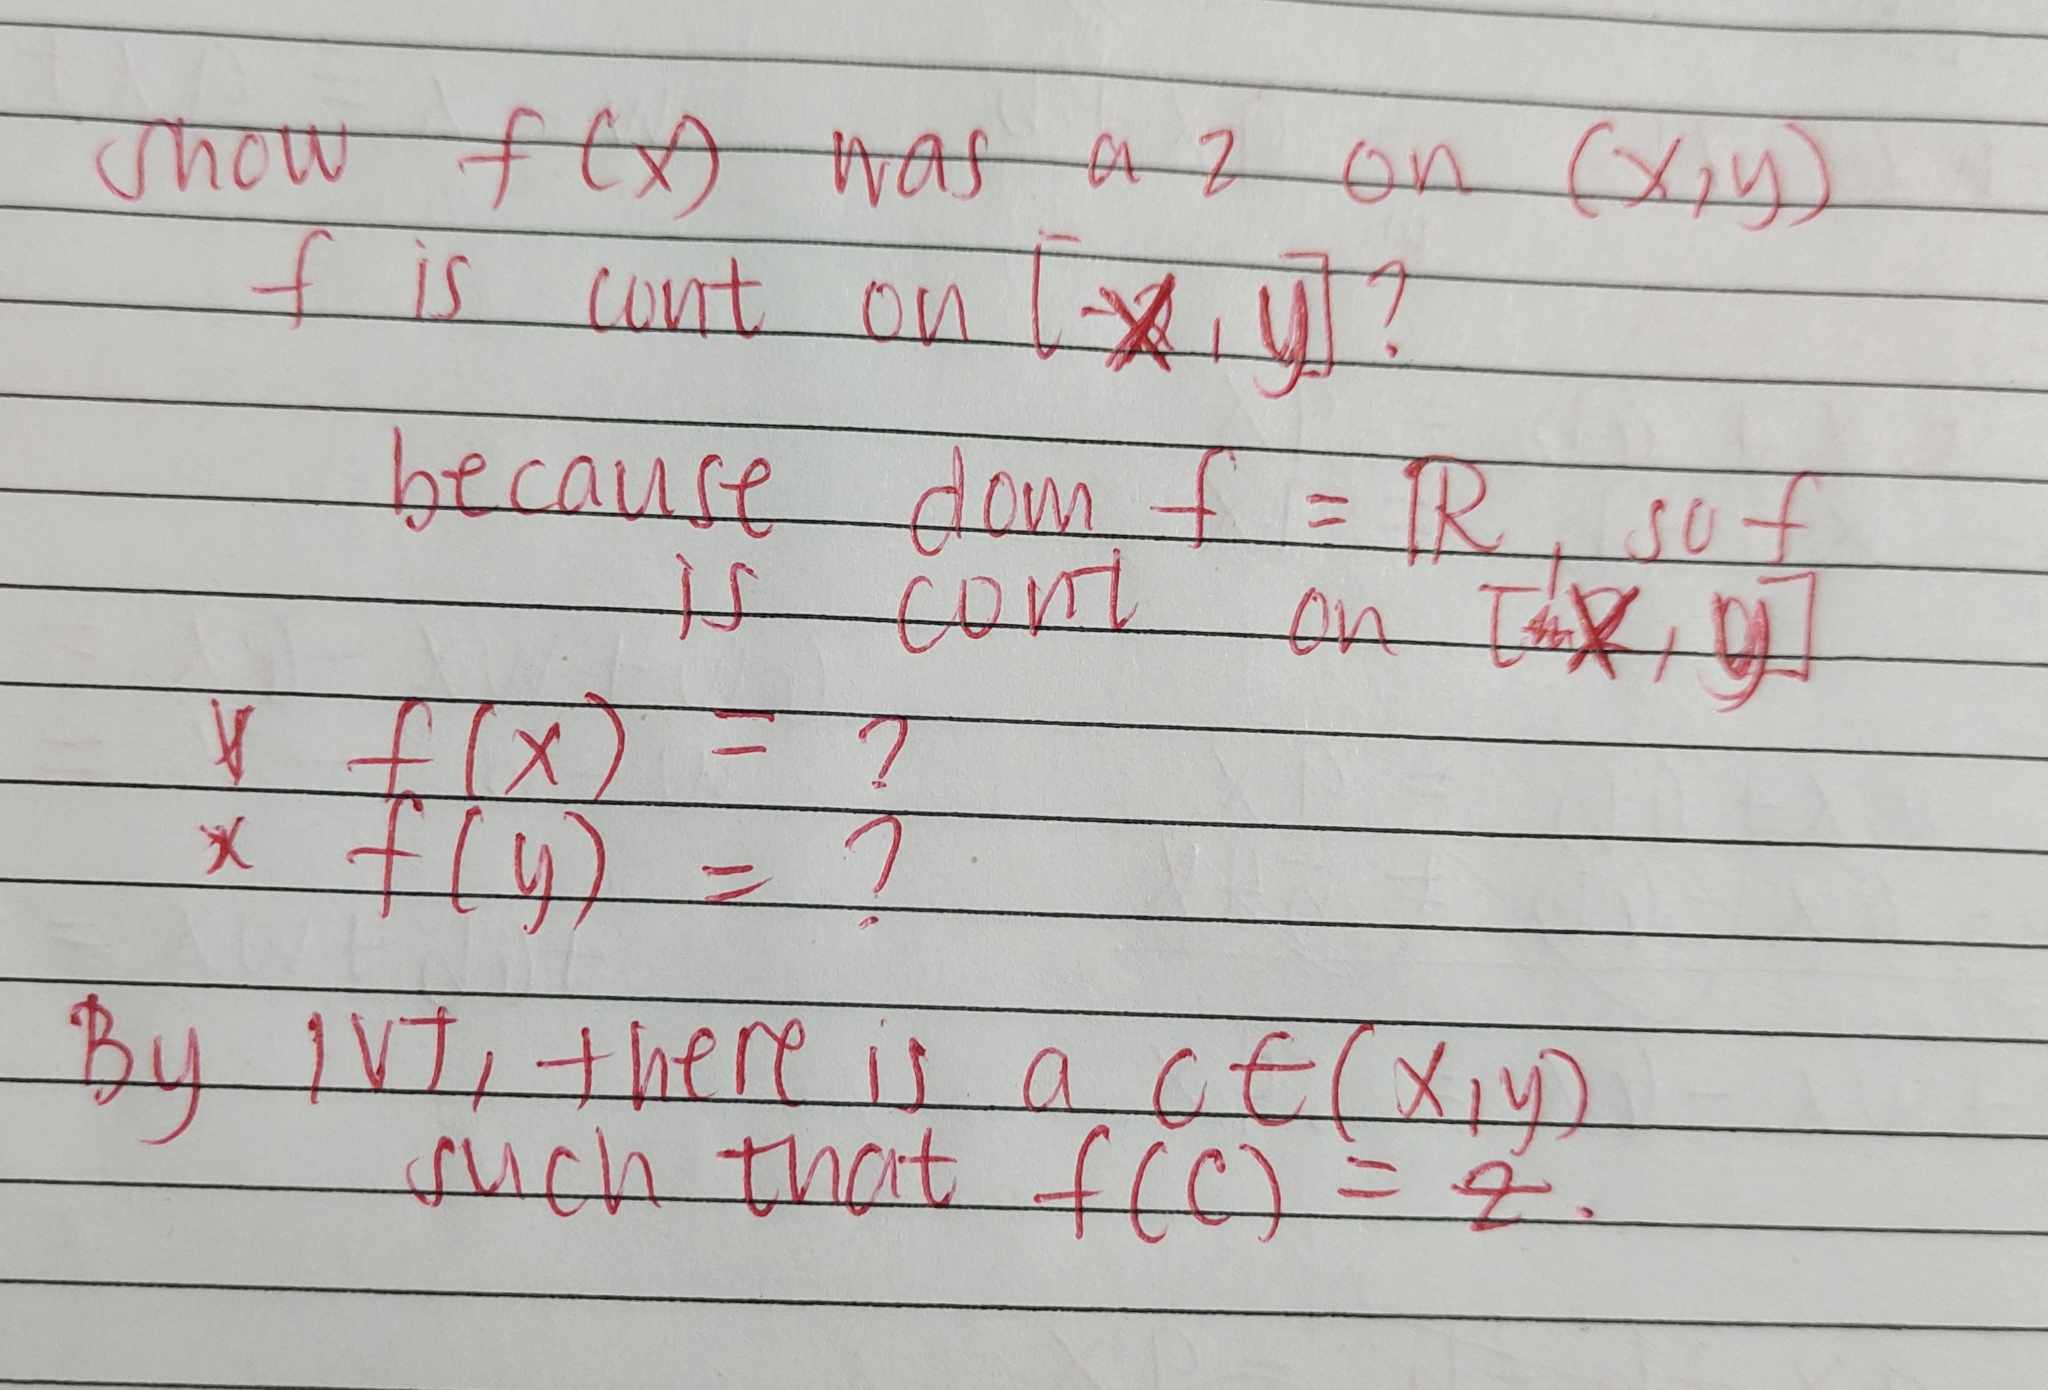 show f(x) has a z on (x,y)
f is cont on [x, y]?
because dom f = ℝ, so f
is cont on [x, y]
* f(x) = ?
* f(y) = ?
By IVT, there is a c ∈ (x,y)
such that f(c) = z.